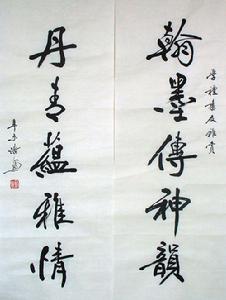 書友雅賞
翰墨傳神韻
丹青蘊雅情
辛未